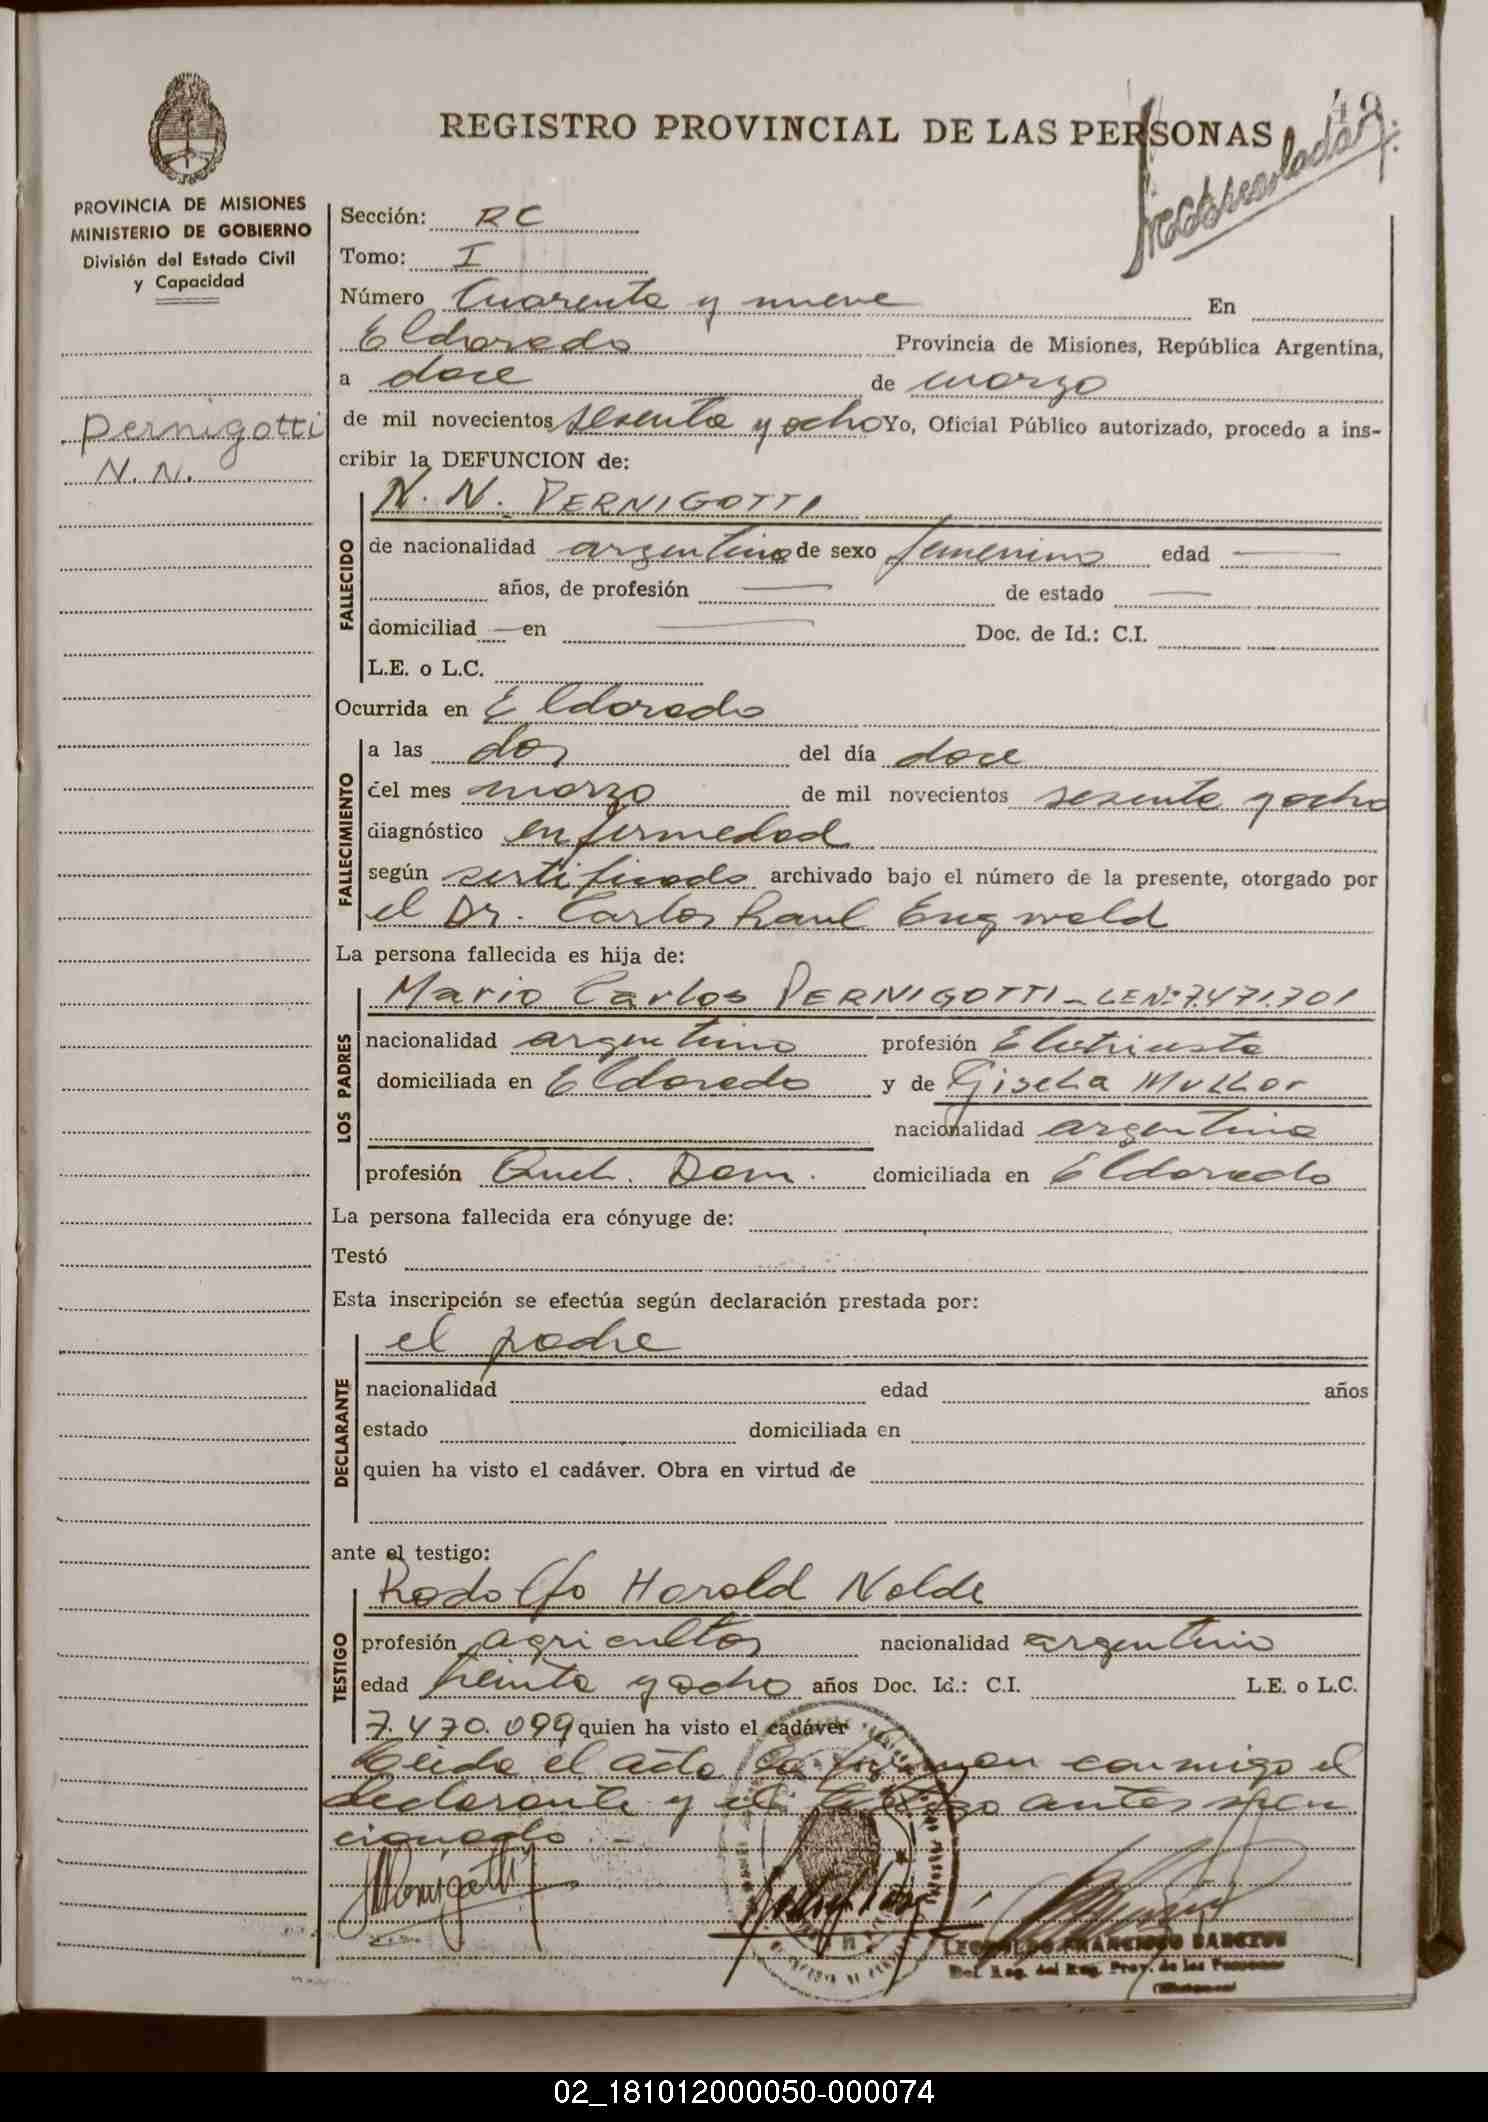 49
REGISTRO PROVINCIAL DE LAS PERSONAS
PROVINCIA DE MISIONES
MINISTERIO DE GOBIERNO
División del Estado Civil
y Capacidad
Pernigotti
N.N.
Sección: RC
Tomo: I
Número Cuarenta y nueve En
Eldorado Provincia de Misiones, República Argentina,
a doce de marzo
de mil novecientos sesenta y ocho Yo, Oficial Público autorizado, procedo a ins-
cribir la DEFUNCION de:
N. N. PERNIGOTTI
FALLECIDO
de nacionalidad argentina de sexo femenino edad —
años, de profesión — de estado —
domiciliad — en — Doc. de Id.: C.I.
L.E. o L.C.
Ocurrida en Eldorado
FALLECIMIENTO
a las dos del día doce
del mes marzo de mil novecientos sesenta y ocho
diagnóstico enfermedad
según sertificado archivado bajo el número de la presente, otorgado por
el Dr. Carlos Raul Engwald
La persona fallecida es hija de:
LOS PADRES
Mario Carlos PERNIGOTTI - L.E.Nº 7.471.701
nacionalidad argentino profesión Eletricista
domiciliada en Eldorado y de Gisela Muller
nacionalidad argentina
profesión Queh. Dom. domiciliada en Eldorado
La persona fallecida era cónyuge de:
Testó
Esta inscripción se efectúa según declaración prestada por:
el padre
DECLARANTE
nacionalidad edad años
estado domiciliada en
quien ha visto el cadáver. Obra en virtud de
ante el testigo:
TESTIGO
Rodolfo Harold Nolde
profesión agricultor nacionalidad argentino
edad treinta y ocho años Doc. Id.: C.I. L.E. o L.C.
7.470.099 quien ha visto el cadáver
Leida el acta la firman conmigo el
declarante y el testigo antes men
cionado -
Del. Reg. del Reg. Prov. de las Personas
02_181012000050-000074